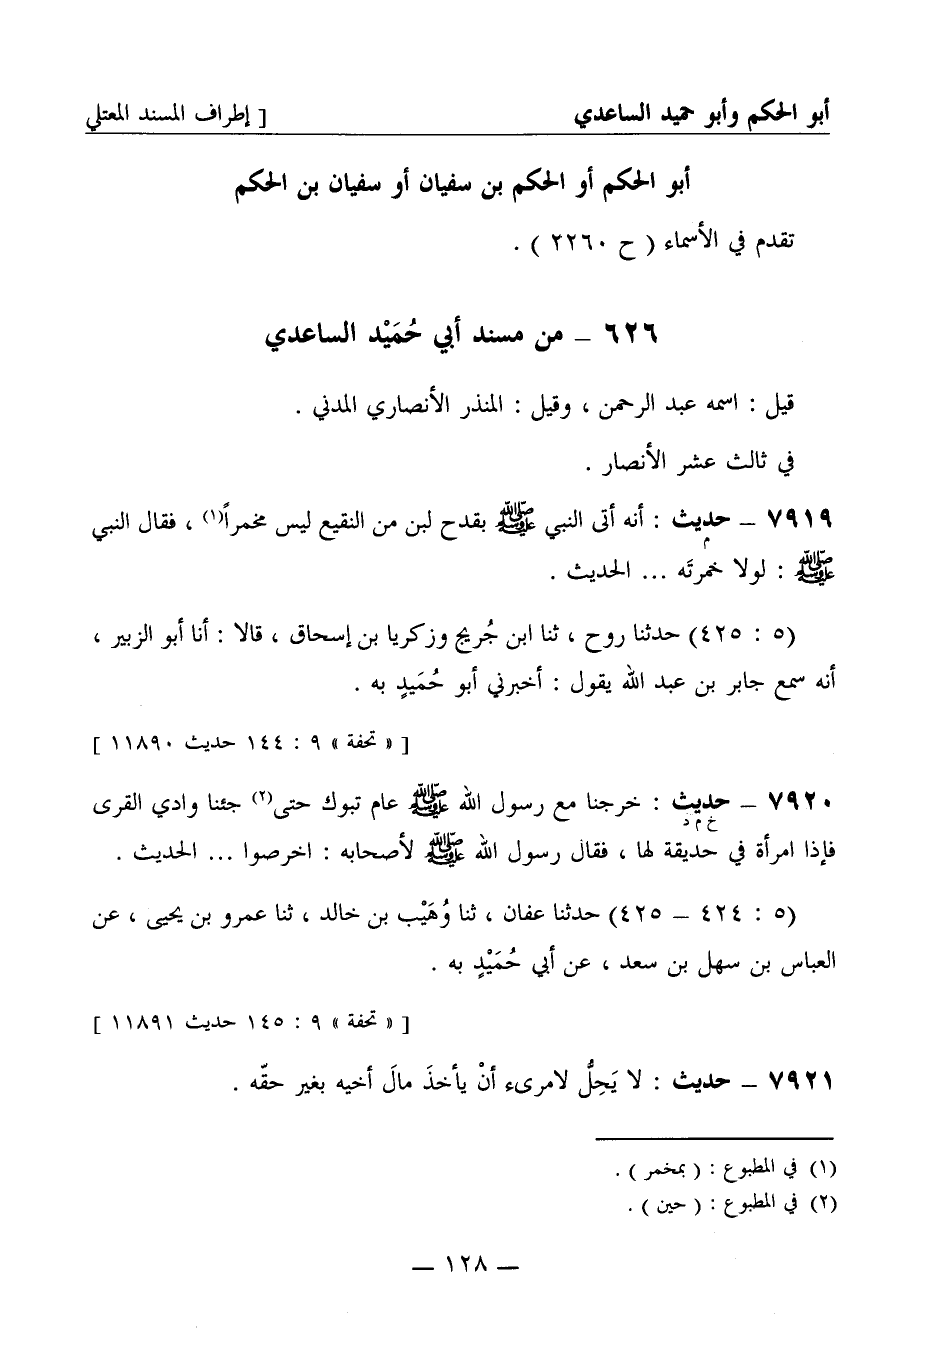 أبو الحكم وأبو حميد الساعدي [ إطراف المسند المعتلي
أبو الحكم أو الحكم بن سفيان أو سفيان بن الحكم
تقدم في الأسماء ( ح ٢٢٦٠ ) .
٦٢٦ ــ من مسند أبي حُمَيْد الساعدي
قيل : اسمه عبد الرحمن ، وقيل : المنذر الأنصاري المدني .
في ثالث عشر الأنصار .
٧٩١٩ ــ حديث : أنه أتى النبي ﷺ بقدح لبن من النقيع ليس مخمراً(١) ، فقال النبي
م
ﷺ : لولا خمرتَه ... الحديث .
(٥ : ٤٢٥) حدثنا روح ، ثنا ابن جُريج وزكريا بن إسحاق ، قالا : أنا أبو الزبير ،
أنه سمع جابر بن عبد الله يقول : أخبرني أبو حُمَيدٍ به .
[ « تحفة » ٩ : ١٤٤ حديث ١١٨٩٠ ]
٧٩٢٠ ــ حديث : خرجنا مع رسول الله ﷺ عام تبوك حتى(٢) جئنا وادي القرى
خ م د
فإذا امرأة في حديقة لها ، فقال رسول الله ﷺ لأصحابه : اخرصوا ... الحديث .
(٥ : ٤٢٤ ــ ٤٢٥) حدثنا عفان ، ثنا وُهَيْب بن خالد ، ثنا عمرو بن يحيى ، عن
العباس بن سهل بن سعد ، عن أبي حُمَيْدٍ به .
[ « تحفة » ٩ : ١٤٥ حديث ١١٨٩١ ]
٧٩٢١ ــ حديث : لا يَحِلُّ لامرىء أنْ يأخذَ مالَ أخيه بغير حقّه .
(١) في المطبوع : ( بمخمر ) .
(٢) في المطبوع : ( حين ) .
ــ ١٢٨ ــ